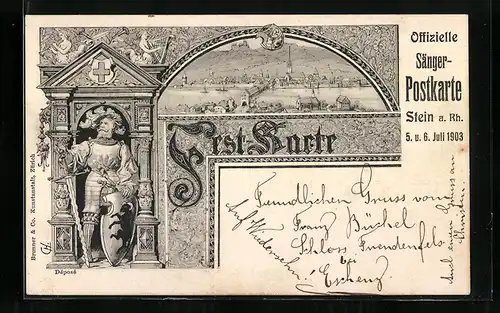 Offizielle
Sänger-
Postkarte
Stein a. Rh.
5. u. 6. Juli 1903
Fest-Karte
Freundlichen Gruss vom
Franz Büchel
Schloss Freudenfels
bei
Eschenz.
Auf Wiedersehn!
Auch einen Gruss an
Brunner & Co. Kunstanstalt, Zürich
Déposé